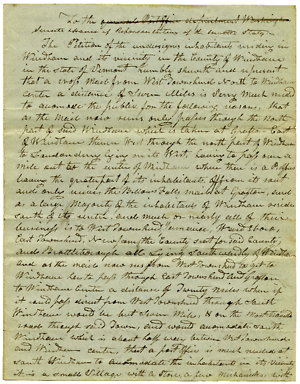 To the
Senate & house of Representatives of the United States
The Petition of the undersigned inhabitants residing in
Windham and its vicinity in the County of Windham
in the State of Vermont humbly sheweth and represent
that a cross Mail from West Townshend North to Windham
Center a distance of Seven Miles is very much need
to accomodate the public for the following reasons, that
as the Mail now runs only passes through the North
part of said Windham which is taken at Grafton East
of Windham thence West through the north part of Windham
to Londonderry lying on its West, having to pass over a
Mile out to the center of Windham where there is a P. office
leaving the great part of its inhabitants
and only receives the Bellows Falls mail at Grafton, and
as a large Majority of the inhabitants of Windham reside
south of its center, and much or nearly all of their
business is to West Townshend, Jamaica, Wardsboro,
East Townshend, Newfane the County seat for said County
and Brattleborough all lying South
and as the mail now
Windham have to pass through East Townshend
to Windham Center a distance of Twenty Miles when if
it could pass direct from West Townshend through South
Windham would be but Seven Miles & on the most
road through said Town, and would accomodate South
Windham which is about half way between West Townshend
and Windham center, that a post office is much needed at
South Windham to accomodate the inhabitants in its vicinity
it is a small Village with a Store a few mechanics